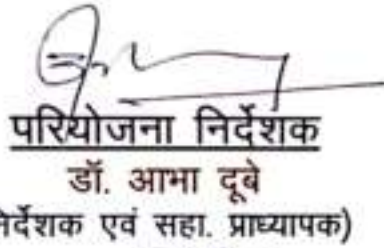 परियोजना निर्देशक
डॉ. आभा दूबे
निर्देशक एवं सहा. प्राध्यापक)